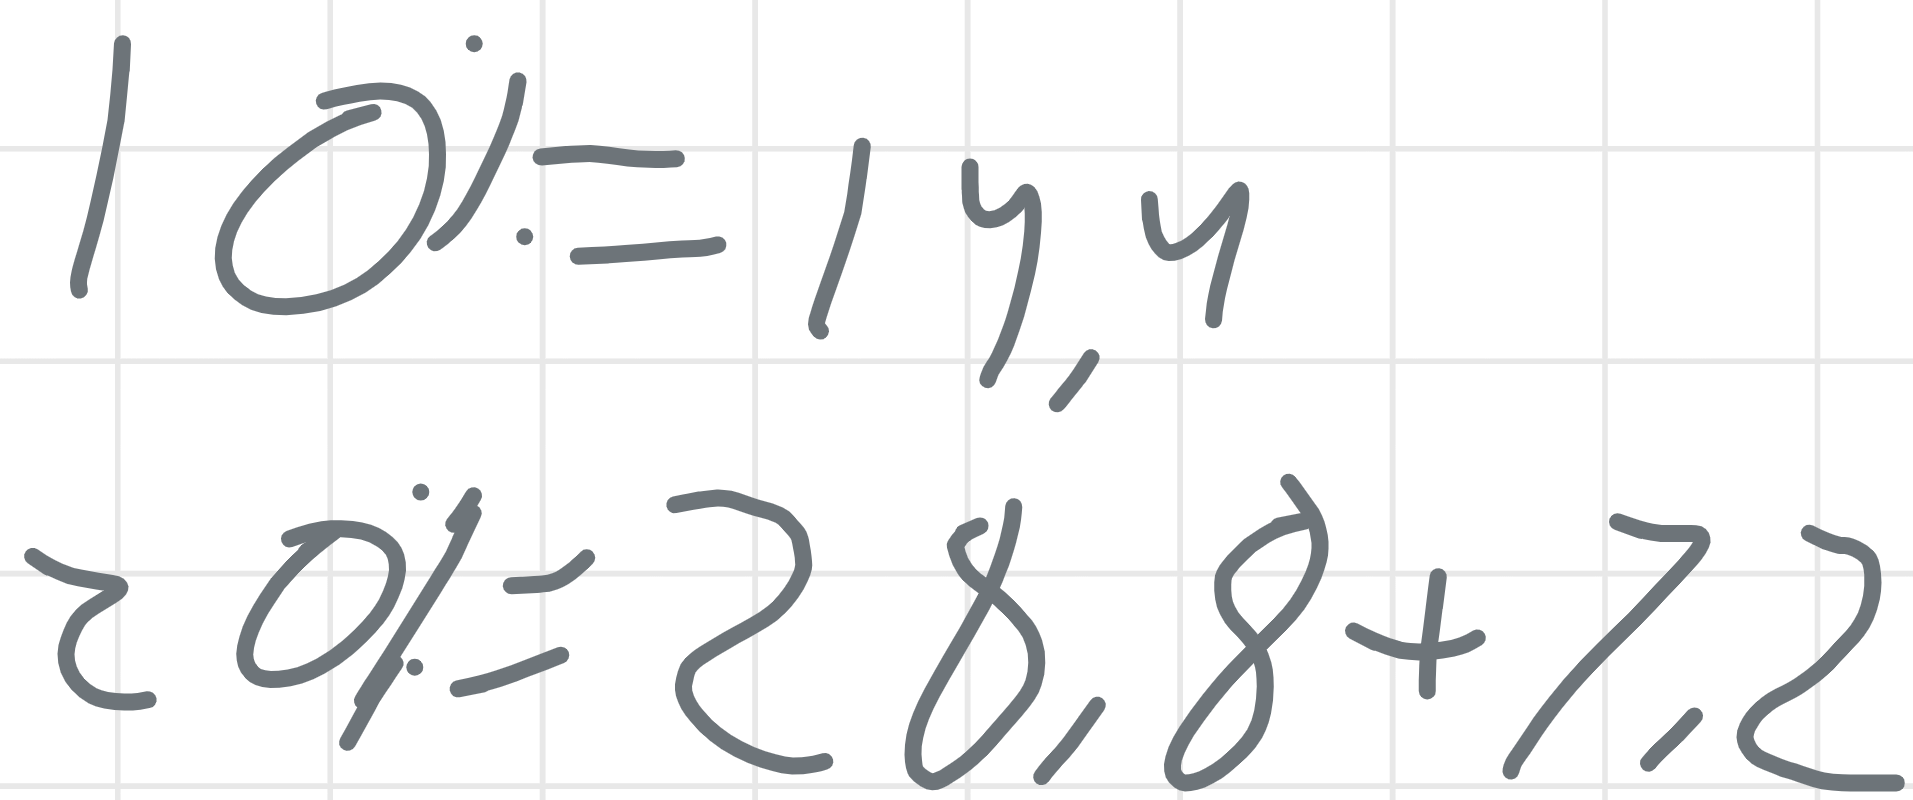 10% = 14,4
20% = 28,8 + 7,2